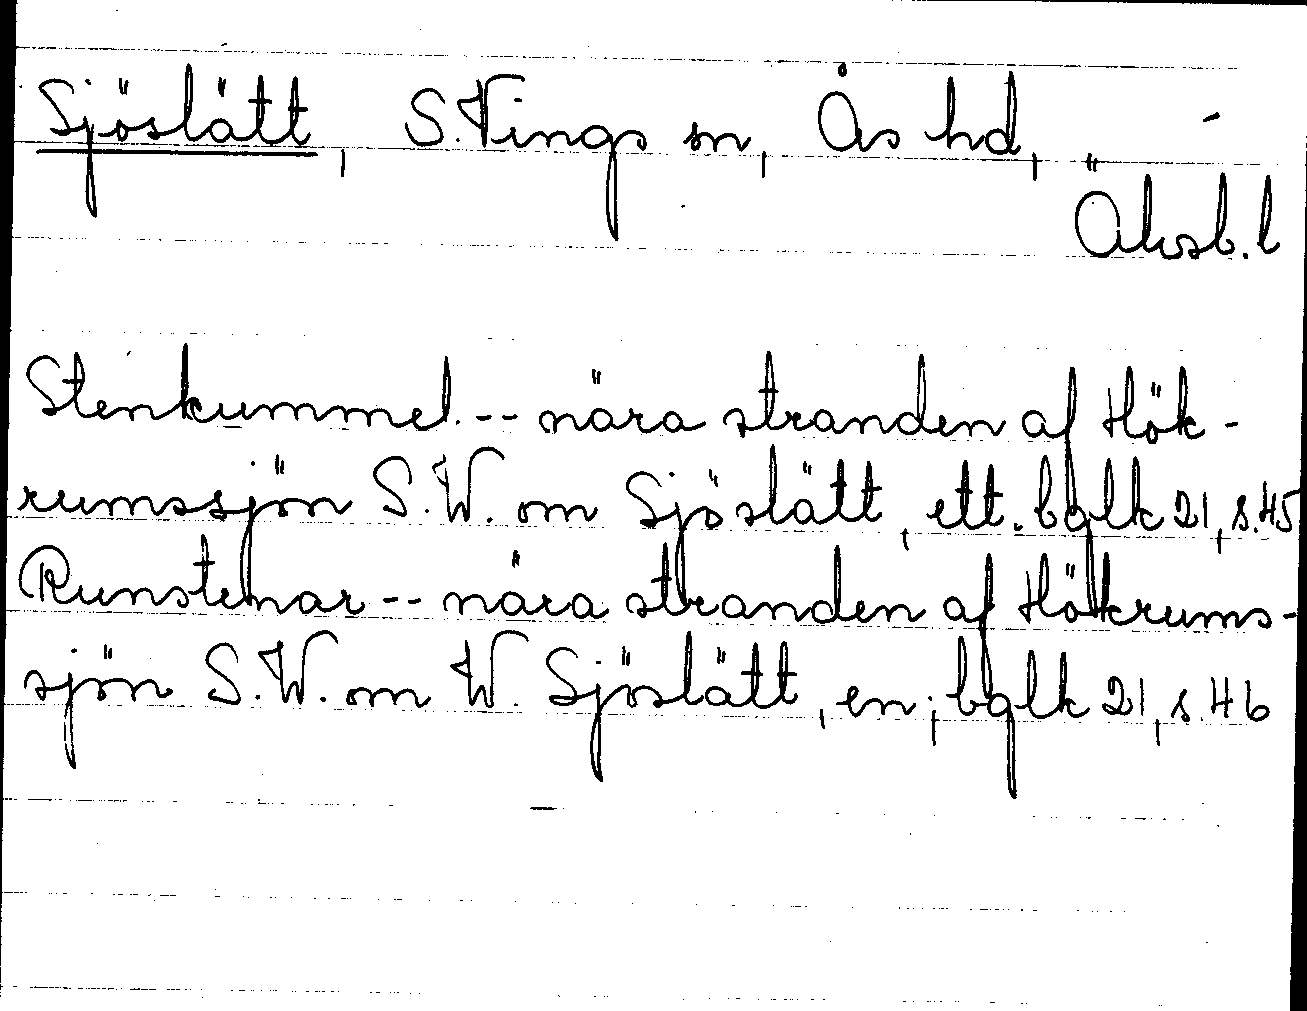 Sjöslätt, S. Vings sn, Ås hd,
Älvsb. l
Stenkummel -- nära stranden af Hök-
rumssjön S.W. om Sjöslätt, ett. bglk 21, s. 45
Runstenar -- nära stranden af Hökrums-
sjön S.W. om W. Sjöslätt, en; bglk 21, s. 46